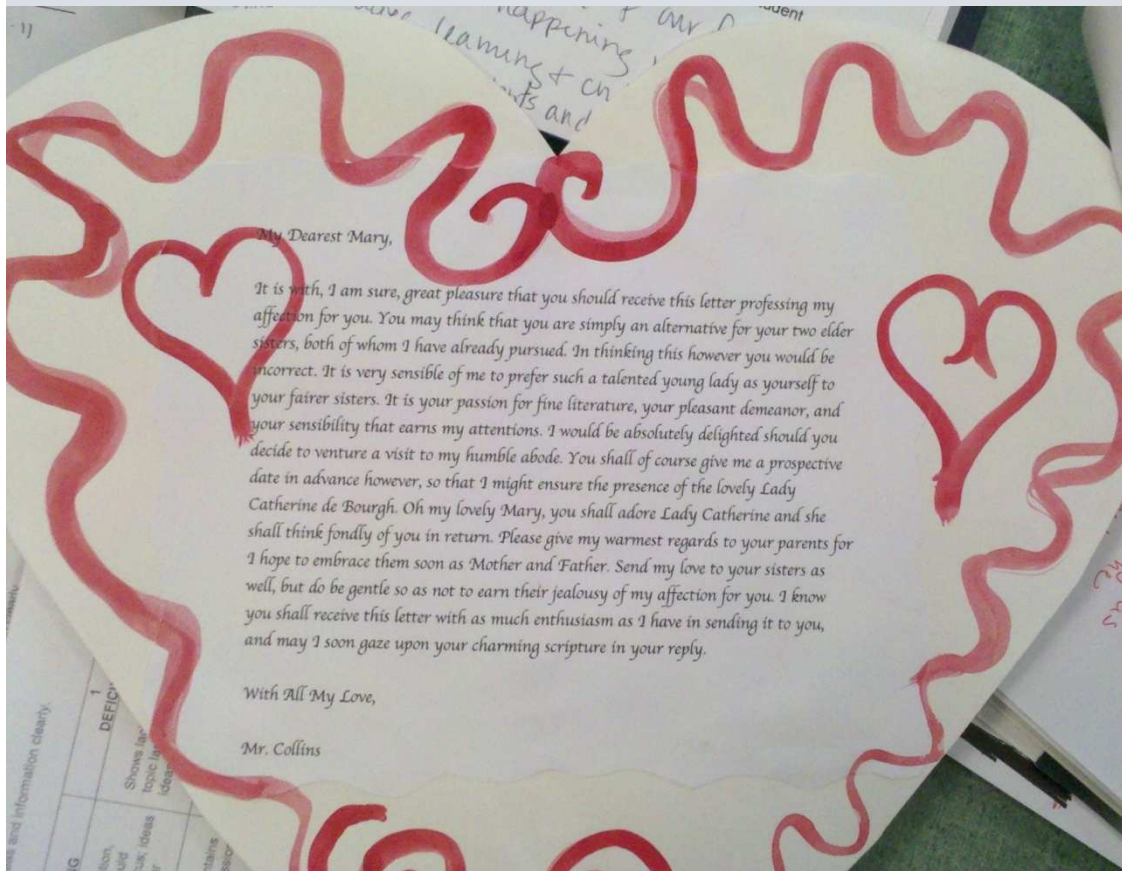 - 1)
happening
+ our
udent
learning + ch
nts and
My Dearest Mary,
It is with, I am sure, great pleasure that you should receive this letter professing my
affection for you. You may think that you are simply an alternative for your two elder
sisters, both of whom I have already pursued. In thinking this however you would be
incorrect. It is very sensible of me to prefer such a talented young lady as yourself to
your fairer sisters. It is your passion for fine literature, your pleasant demeanor, and
your sensibility that earns my attentions. I would be absolutely delighted should you
decide to venture a visit to my humble abode. You shall of course give me a prospective
date in advance however, so that I might ensure the presence of the lovely Lady
Catherine de Bourgh. Oh my lovely Mary, you shall adore Lady Catherine and she
shall think fondly of you in return. Please give my warmest regards to your parents for
I hope to embrace them soon as Mother and Father. Send my love to your sisters as
well, but do be gentle so as not to earn their jealousy of my affection for you. I know
you shall receive this letter with as much enthusiasm as I have in sending it to you,
and may I soon gaze upon your charming scripture in your reply.
With All My Love,
Mr. Collins
ss and information clearly.
1
DEFICI
Shows lac
topic la
idea
us; ideas
ntains